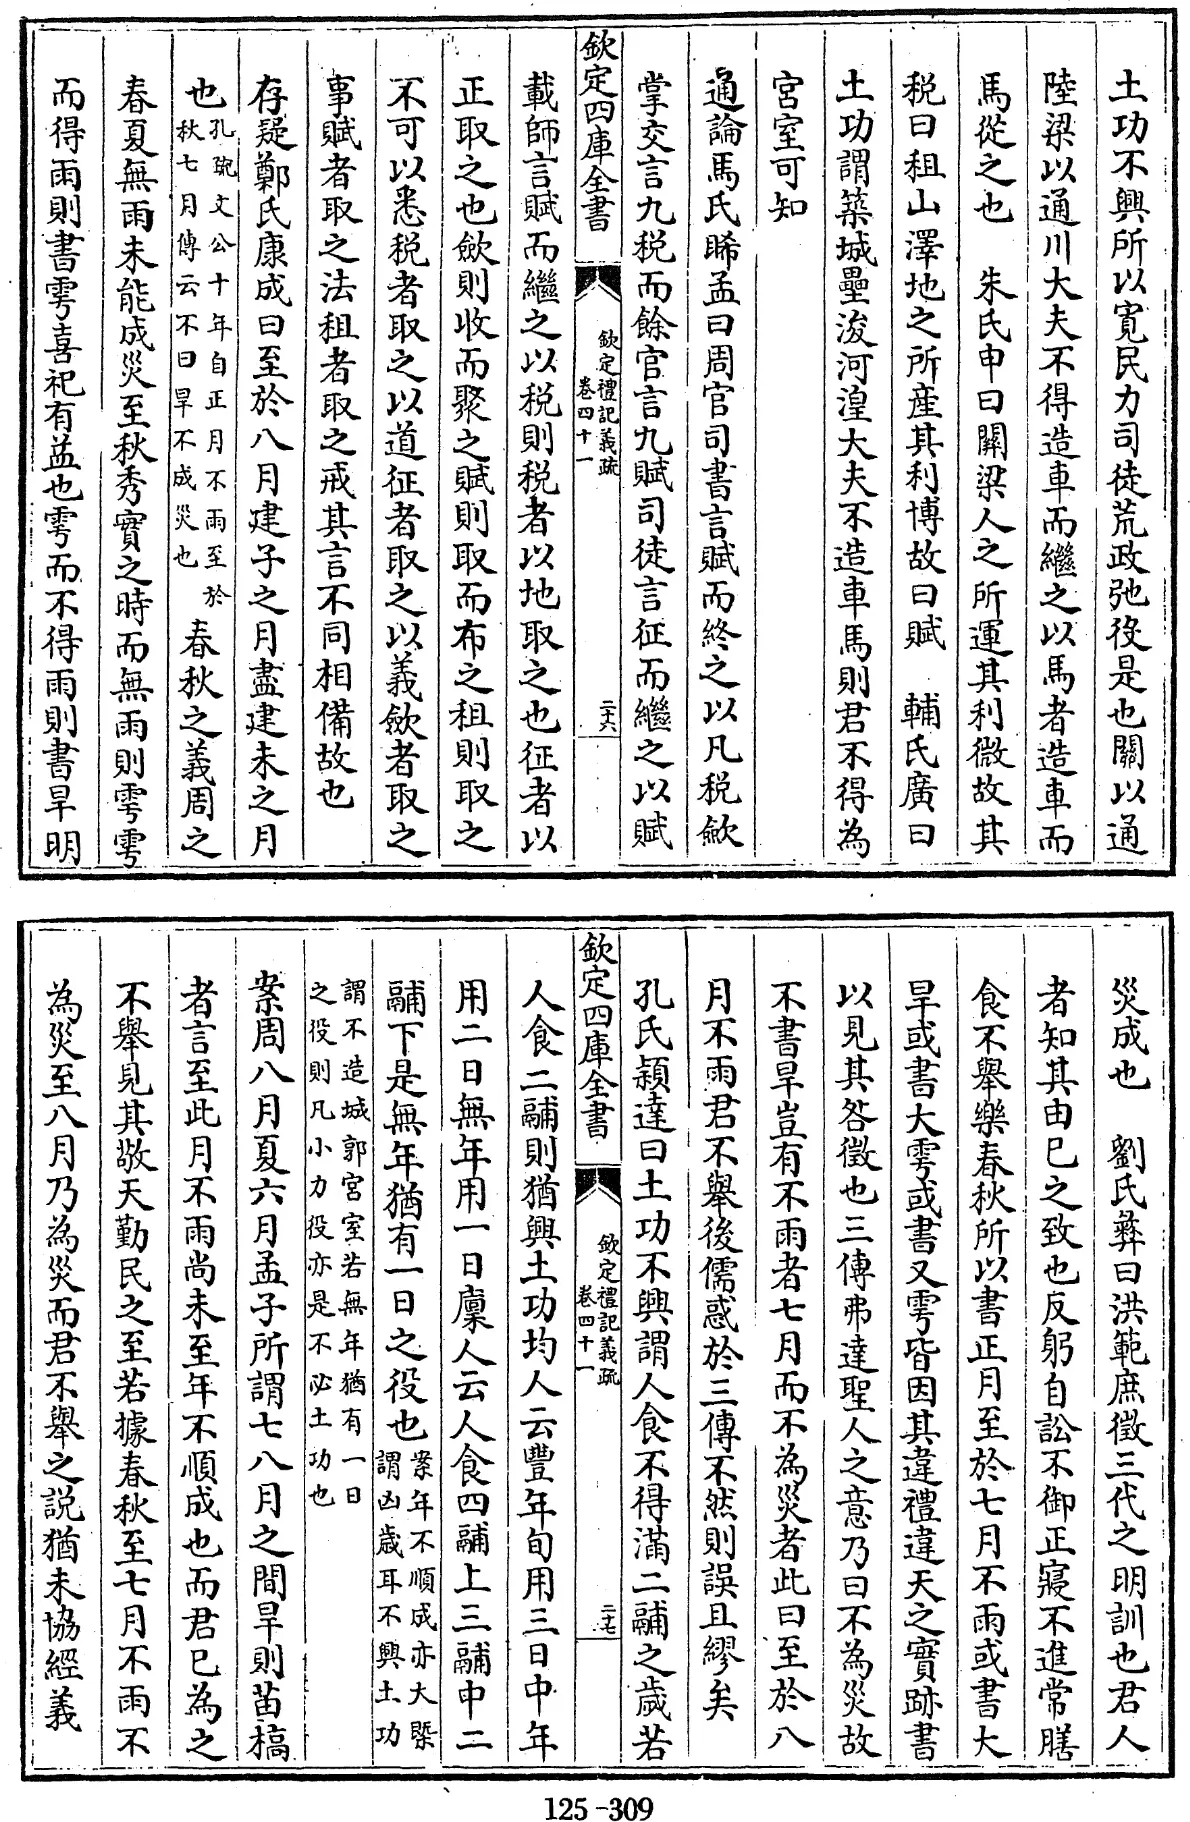 土功不興所以寛民力司徒荒政弛役是也關以通
陸梁以通川大夫不得造車而繼之以馬者造車而
馬從之也　朱氏申曰關梁人之所運其利微故其
税曰租山澤地之所産其利博故曰賦　輔氏廣曰
土功謂築城壘浚河湟大夫不造車馬則君不得為
宫室可知
通論馬氏睎孟曰周官司書言賦而終之以凡税歛
掌交言九税而餘官言九賦司徒言征而繼之以賦
欽定四庫全書
欽定禮記義疏
卷四十一
二十六
載師言賦而繼之以税則税者以地取之也征者以
正取之也歛則收而聚之賦則取而布之租則取之
不可以悉税者取之以道征者取之以義歛者取之
事賦者取之法租者取之戒其言不同相備故也
存疑鄭氏康成曰至於八月建子之月盡建未之月
也孔疏文公十年自正月不雨至於
秋七月傳云不曰旱不成災也　春秋之義周之
春夏無雨未能成災至秋秀實之時而無雨則雩雩
而得雨則書雩喜祀有益也雩而不得雨則書旱明
災成也　劉氏彝曰洪範庶徵三代之明訓也君人
者知其由已之致也反躬自訟不御正寢不進常膳
食不舉樂春秋所以書正月至於七月不雨或書大
旱或書大雩或書又雩皆因其違禮違天之實跡書
以見其咎徵也三傳弗達聖人之意乃曰不為災故
不書旱豈有不雨者七月而不為災者此曰至於八
月不雨君不舉後儒惑於三傳不然則誤且繆矣
孔氏穎達曰土功不興謂人食不得滿二鬴之歲若
欽定四庫全書
欽定禮記義疏
卷四十一
二十七
人食二鬴則猶興土功均人云豐年旬用三日中年
用二日無年用一日廩人云人食四鬴上三鬴中二
鬴下是無年猶有一日之役也案年不順成亦大槩
謂凶歲耳不興土功
謂不造城郭宫室若無年猶有一日
之役則凡小力役亦是不必土功也
案周八月夏六月孟子所謂七八月之間旱則苗槁
者言至此月不雨尚未至年不順成也而君已為之
不舉見其敬天勤民之至若據春秋至七月不雨不
為災至八月乃為災而君不舉之説猶未協經義
125-309